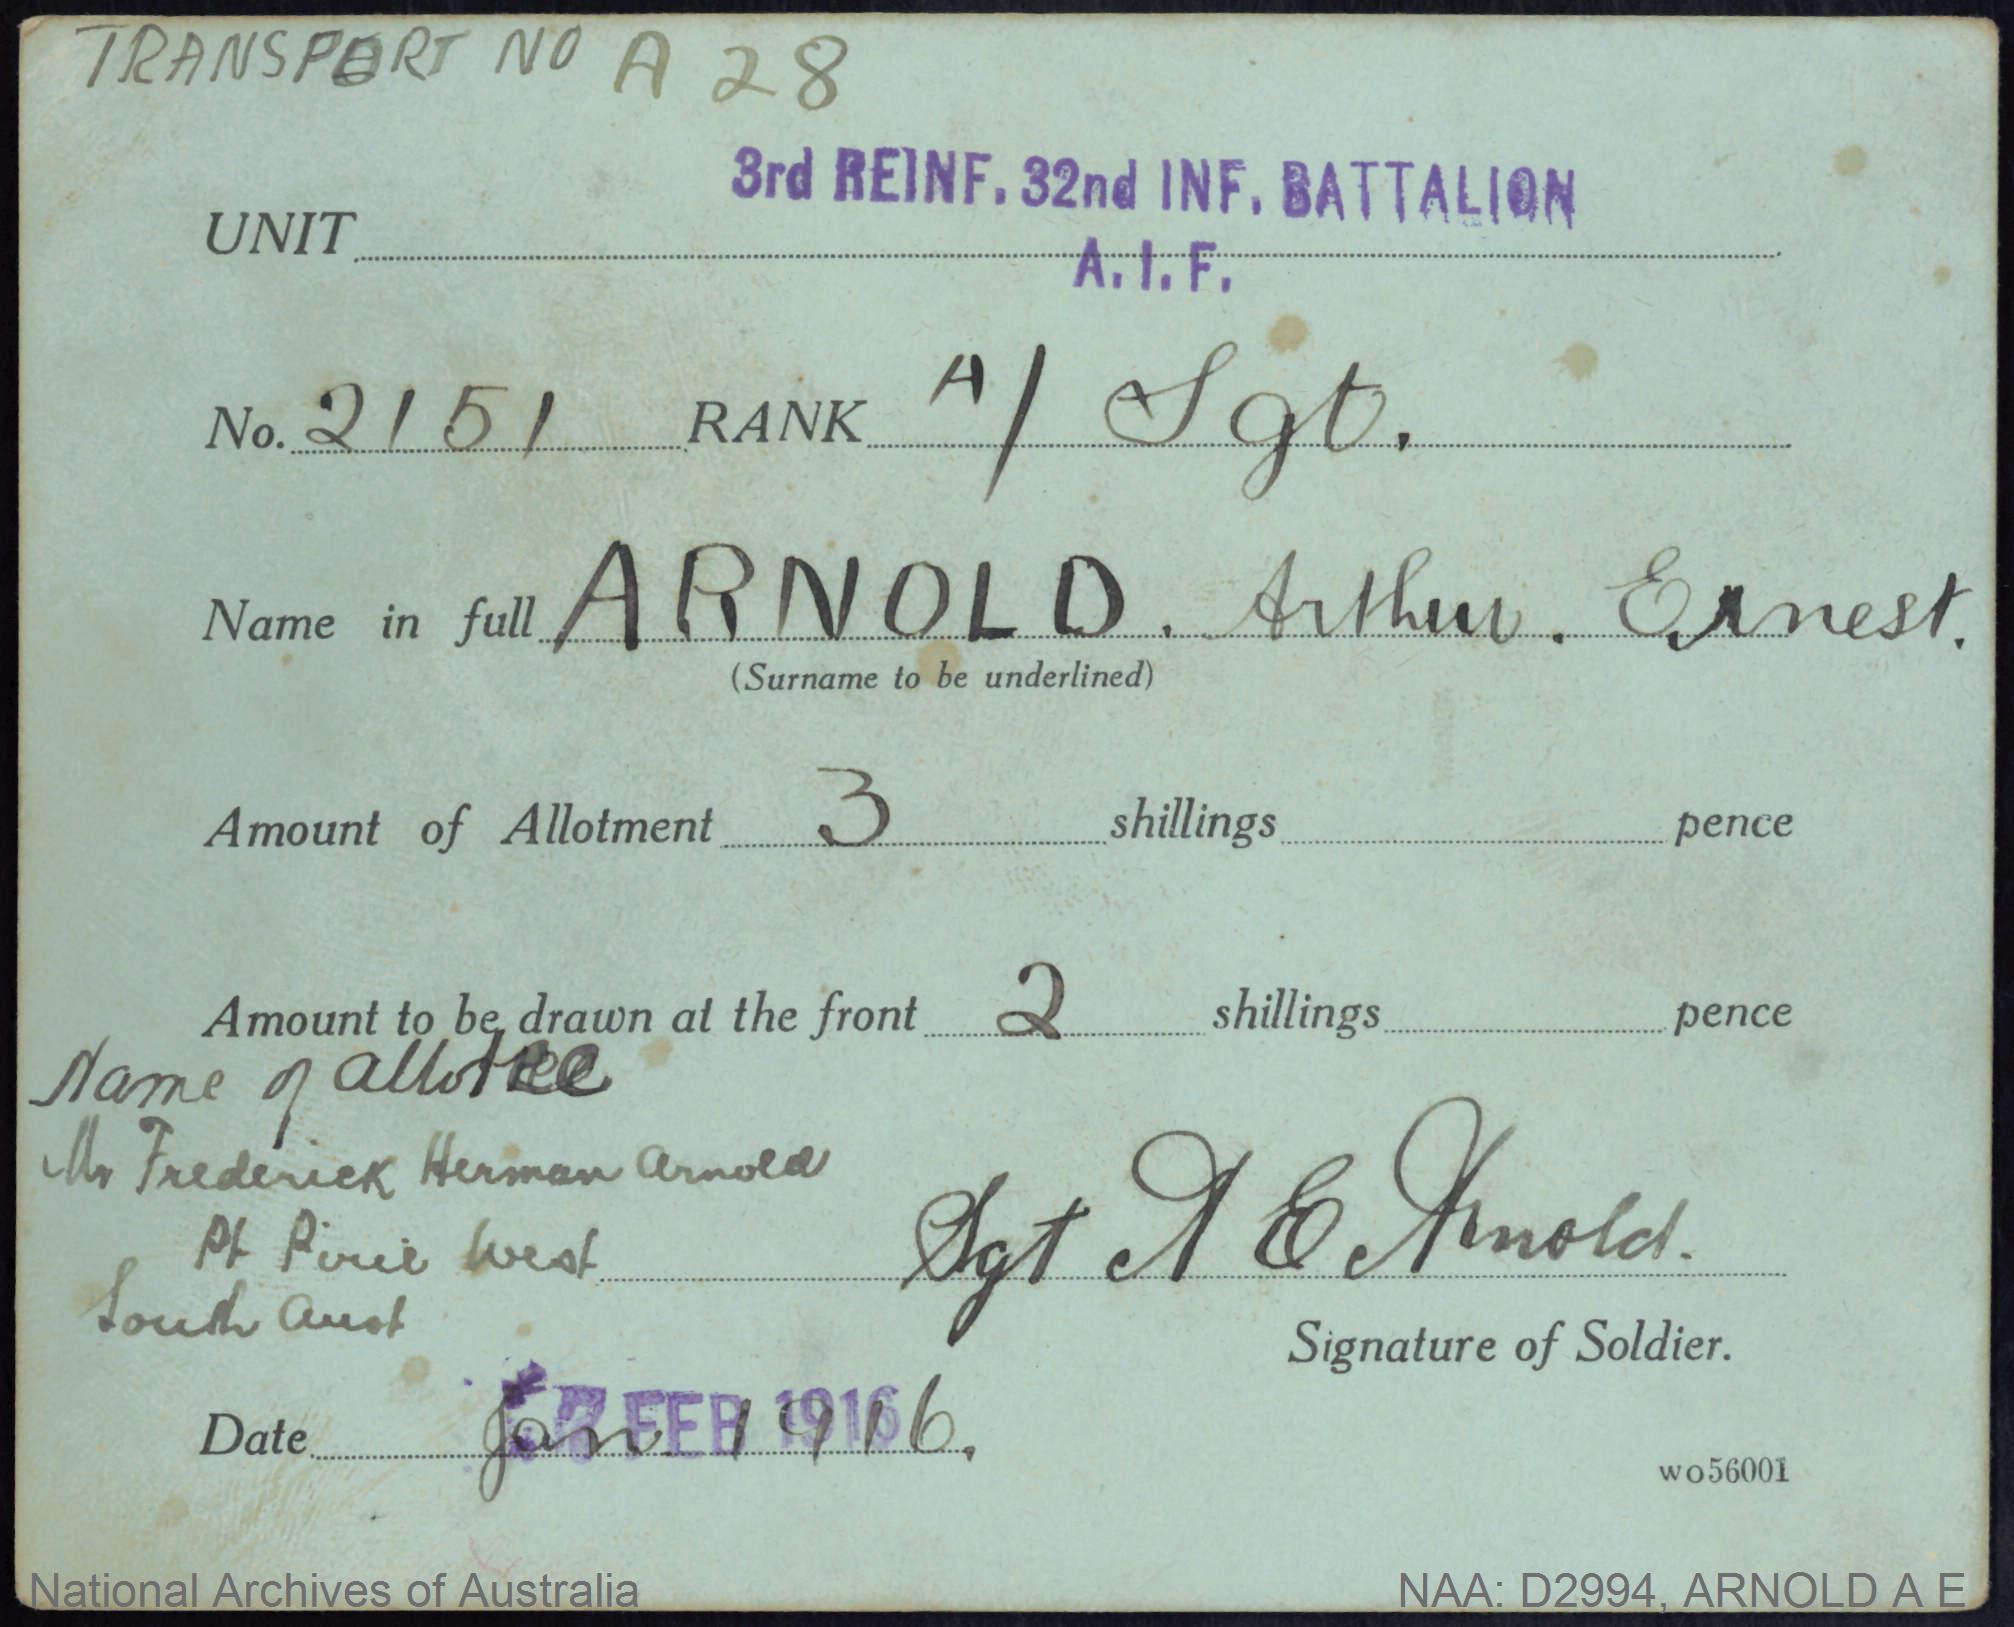 TRANSPORT NO A 28
3rd REINF. 32nd INF. BATTALION
UNIT
A. I. F.
No. 2151 RANK A/ Sgt.
Name in full ARNOLD. Arthur. Ernest.
(Surname to be underlined)
Amount of Allotment 3 shillings pence
Amount to be drawn at the front 2 shillings pence
Name of allottee
Mr Frederick Herman Arnold
Pt Pirie West
South Aust
Sgt A E Arnold.
Signature of Soldier.
FEB 1916
Date Jan 1916.
wo56001
National Archives of Australia
NAA: D2994, ARNOLD A E